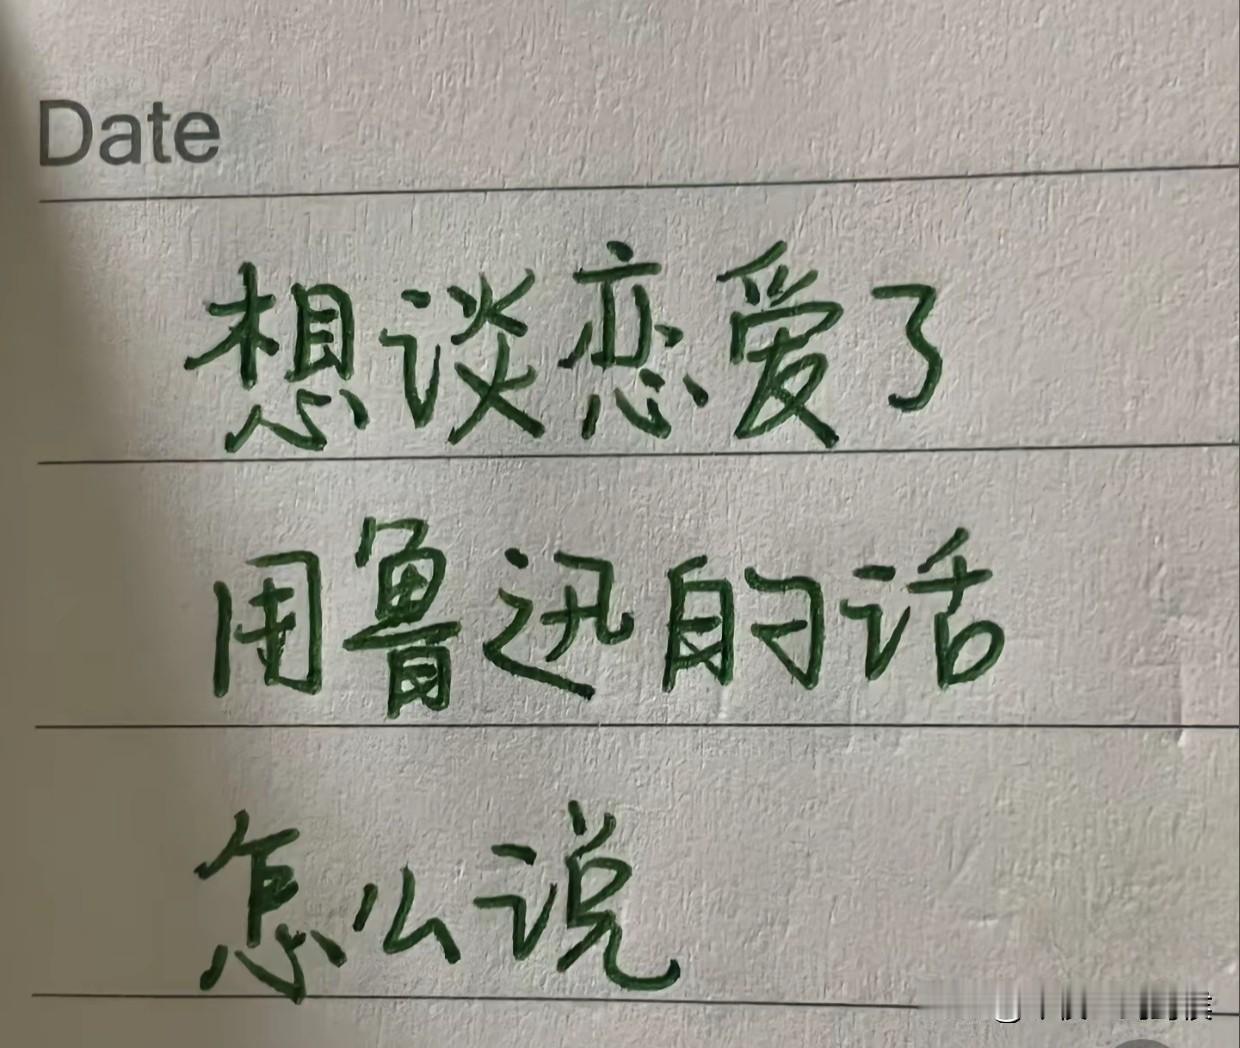 Date
想谈恋爱了
用鲁迅的话
怎么说